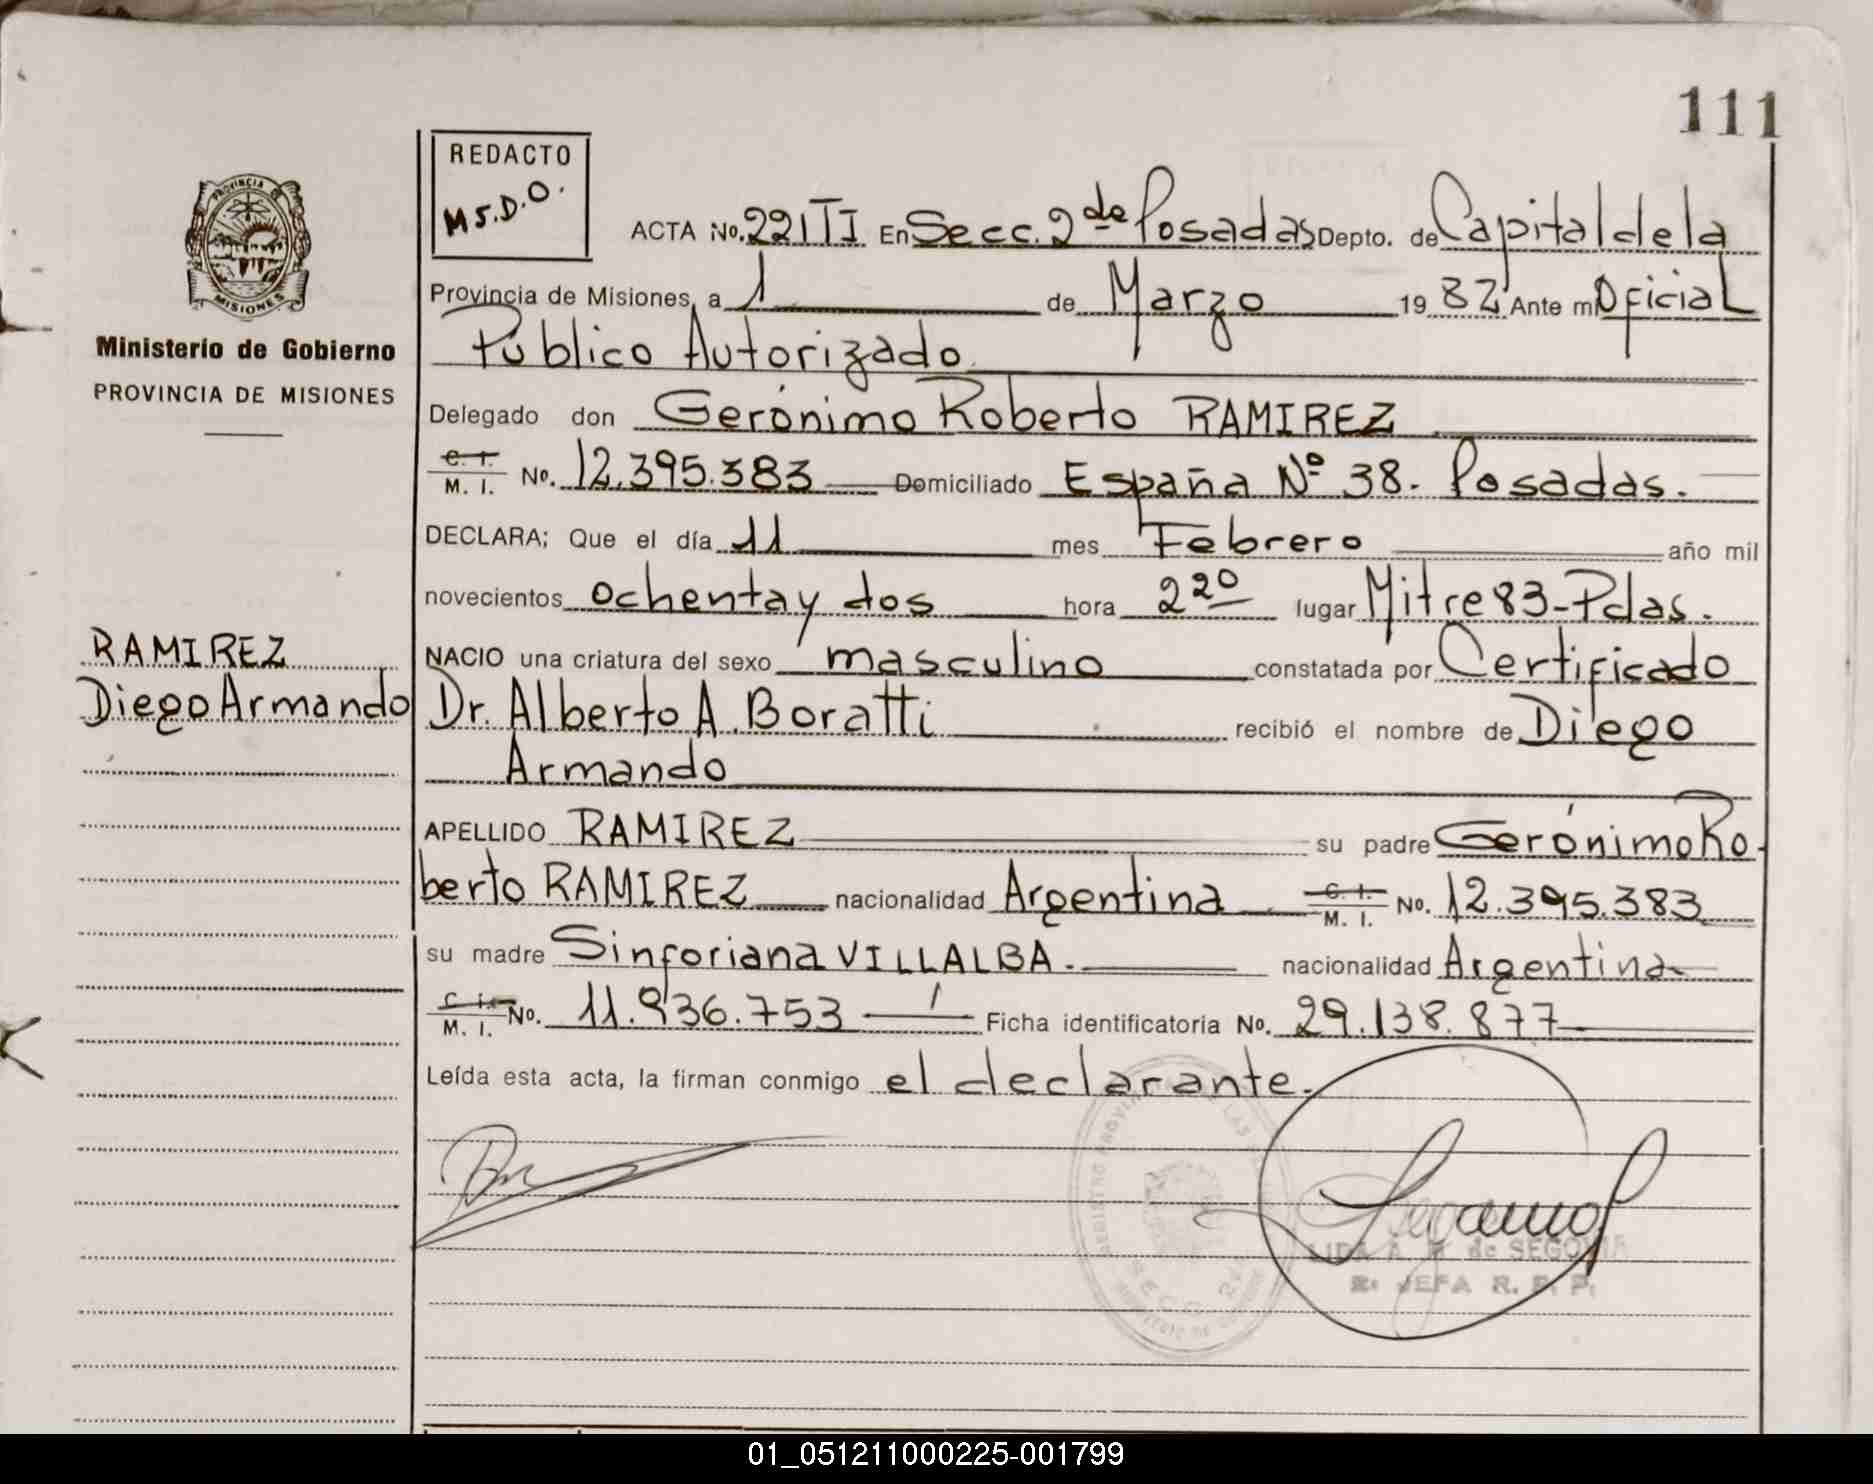 111
REDACTO
M S.D.O.
PROVINCIA DE
MISIONES
Ministerio de Gobierno
PROVINCIA DE MISIONES
ACTA No. 221 TI En Secc. 2da de Posadas Depto. de Capital de la
Provincia de Misiones, a 1 de Marzo 1982 Ante mi Oficial
Público Autorizado
Delegado don Gerónimo Roberto RAMIREZ
C. I.
M. I. No. 12.395.383 Domiciliado España Nº 38. Posadas.
DECLARA; Que el día 11 mes Febrero año mil
novecientos ochenta y dos hora 2 20 lugar Mitre 83-Pdas.
RAMIREZ
Diego Armando
NACIO una criatura del sexo masculino constatada por Certificado
Dr. Alberto A. Boratti recibió el nombre de Diego
Armando
APELLIDO RAMIREZ su padre Gerónimo Ro
berto RAMIREZ nacionalidad Argentina C. I.
M. I. No. 12.395.383
su madre Sinforiana VILLALBA. nacionalidad Argentina
C. I.
M. I. No. 11.936.753 Ficha identificatoria No. 29.138.877
Leída esta acta, la firman conmigo el declarante.
LIDA A de SEGOVIA
JEFA R. P. P.
01_051211000225-001799